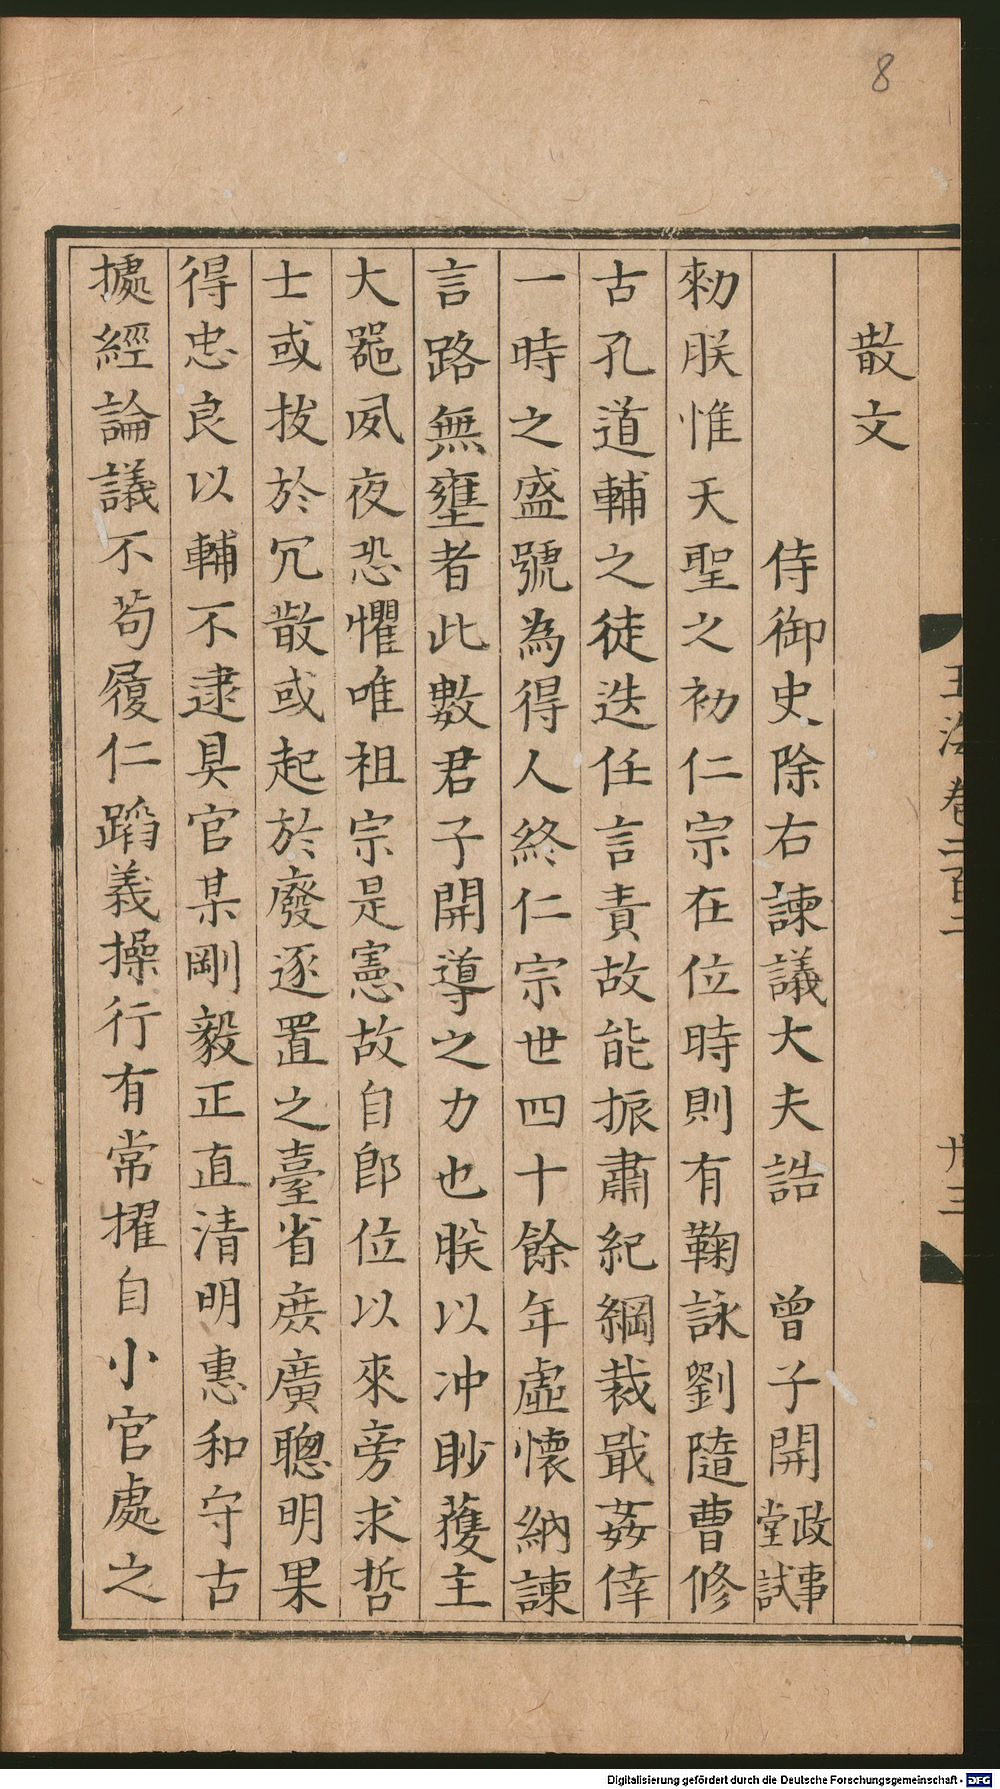 8
玉海卷二百二
卅三
散文
侍御史除右諫議大夫誥 曾子開 政事堂試
勑朕惟天聖之初仁宗在位時則有鞠詠劉隨曹修
古孔道輔之徒迭任言責故能振肅紀綱裁戢姦倖
一時之盛號為得人終仁宗世四十餘年虛懷納諫
言路無壅者此數君子開導之力也朕以冲眇獲主
大器夙夜恐懼唯祖宗是憲故自即位以來旁求哲
士或拔於冗散或起於廢逐置之臺省庻廣聰明果
得忠良以輔不逮具官某剛毅正直清明惠和守古
㨿經論議不茍履仁蹈義操行有常擢自小官處之
Digitalisierung gefördert durch die Deutsche Forschungsgemeinschaft - DFG